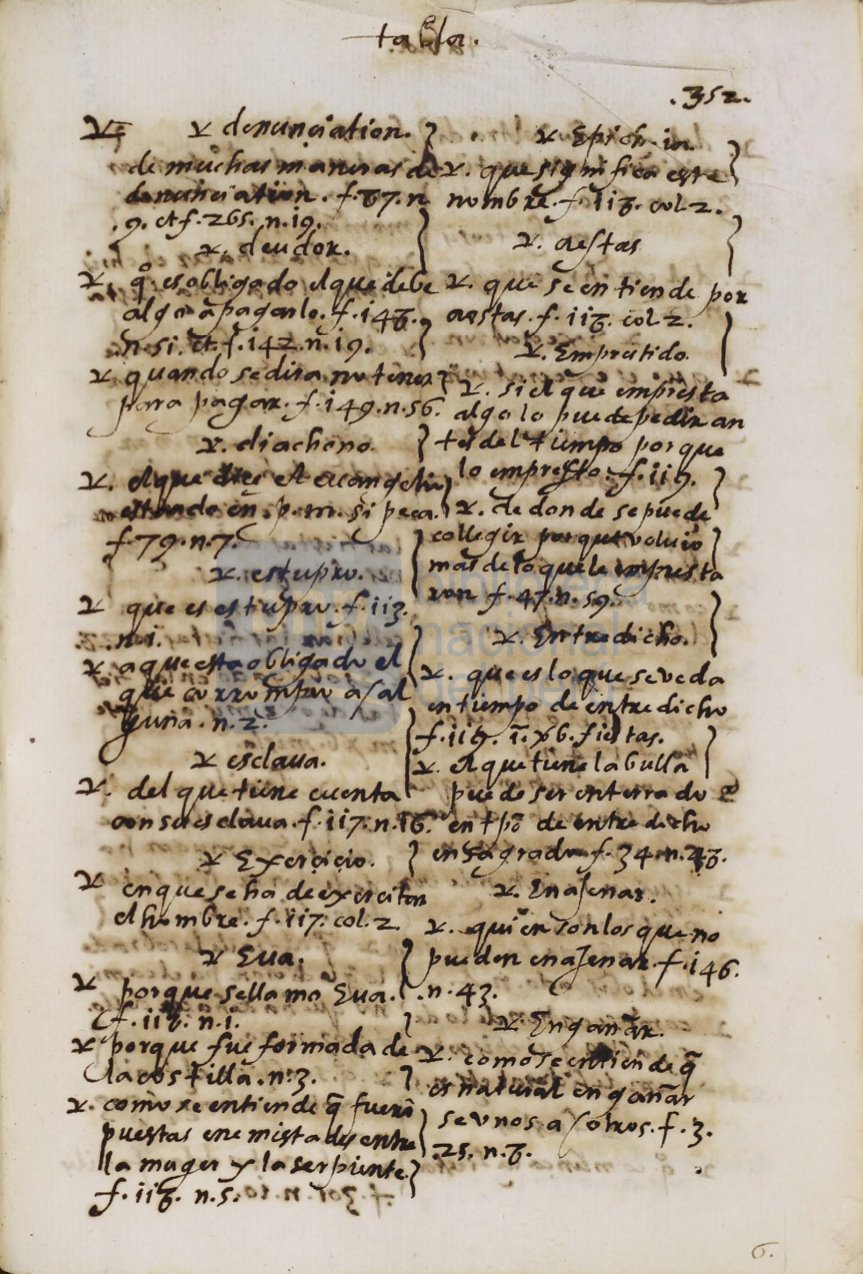 tabla.
.352.
v denunciation.
de muchas maneras de
denunciation. f. 87. n
.9. et f. 265. n. 19.
v. deudor.
v. q̊ es obligado el que debe
algo a pagarlo. f. 148.
n. 51. et f. 142. n. 19.
v quando se dira no tener
para pagar. f. 149. n. 56.
v. diachono.
v. el que dize el euangelio
estando en p. m. si peca.
f. 79. n. 7.
v. estupro.
v que es estupro. f. 113.
.n. 1.
v a que esta obligado el
que corrompio a al
guna. n. 2.
v esclaua.
v. del que tiene cuenta
con su esclaua. f. 117. n. 16.
v Exercicio.
v en que se ha de exercitar
el hombre. f. 117. col. 2
v Eua.
v porque se llamo Eua.
f. 118. n. 1.
v porque fue formada de
la costilla. n. 3.
v. como se entiende q̃ fuerõ
puestas enemistades entre
la muger y la serpiente
f. 118. n. 5.
v. que significa este
nombre. f. 118. col 2.
v. aestas
v. que se entiende por
aestas. f. 118. col 2.
v. Emprestido
v. si el que empresta
algo lo puede pedir an
tes del tiempo porque
lo empresto. f. 119.
v. de donde se puede
collegir porque voluio
mas de lo que le empresta
ron f. 47. n. 59.
v. Entredicho.
v. que es lo que se veda
en tiempo de entredicho
f. 119. fiestas.
v. el que tiene la bulla
puede ser enterrado
en tp̃o de entredicho
en sagrado f. 34. n. 28.
v. Enajenar.
v. quien son los que no
pueden enajenar. f. 146.
.n. 43.
v. Engañar.
v. como se entiende q̃
es natural engañar
se vnos a otros. f. 3.
25. n. 8.
6.